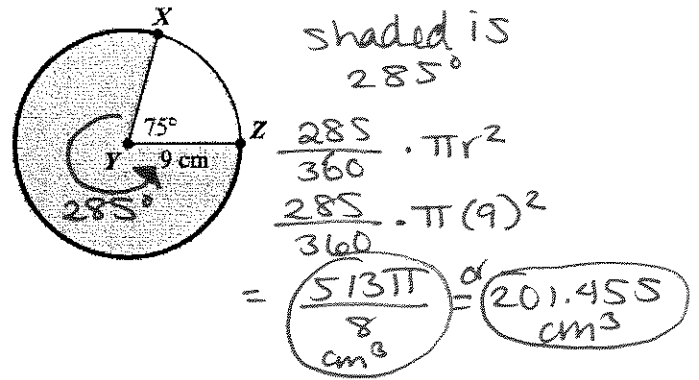 X
75°
Z
Y
9 cm
285°
shaded is
285°
285/360 · πr²
285/360 · π(9)²
= 513π/8 cm³ or = 201.455 cm³